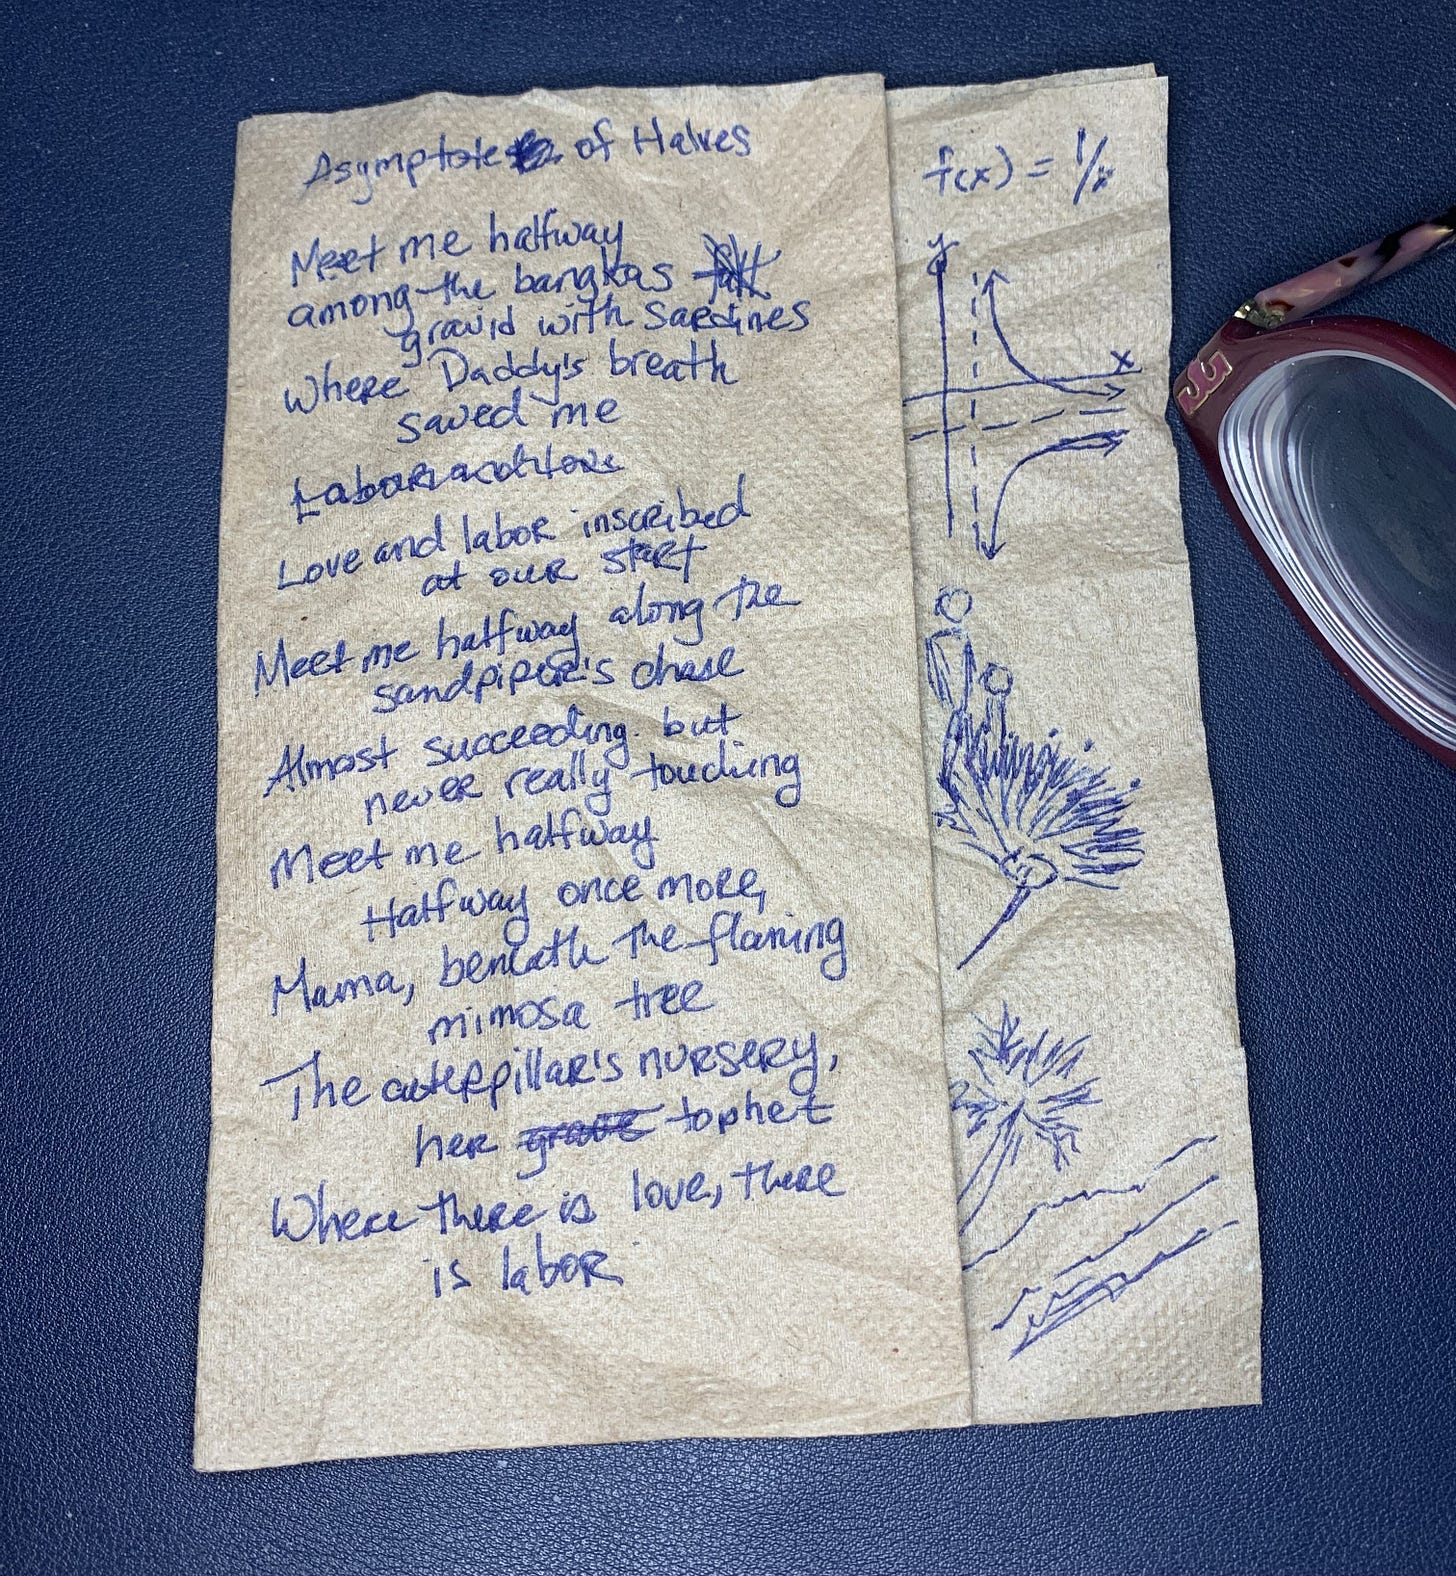 Asymptote of Halves
Meet me halfway
among the bangkas
gravid with sardines
Where Daddy's breath
saved me
Love and labor inscribed
at our start
Meet me halfway along the
sandpiper's chase
Almost succeeding but
never really touching
Meet me halfway
Halfway once more,
Mama, beneath the flaming
mimosa tree
The caterpillar's nursery,
her grave tophet
Where there is love, there
is labor
f(x) = 1/x
y
x